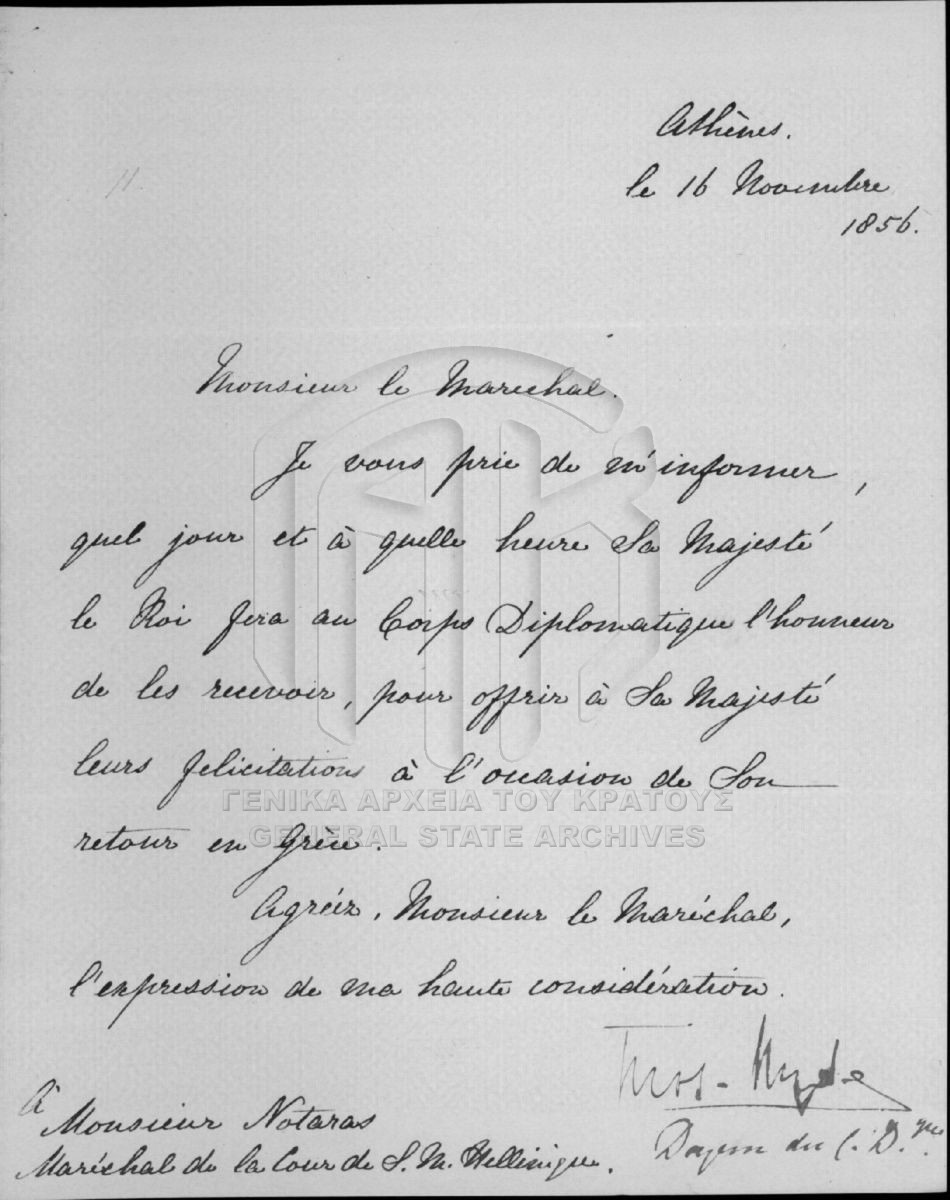 Athènes.
le 16 Novembre
1856.
11
Monsieur le Marechal.
Je vous prie de m'informer,
quel jour et à quelle heure Sa Majesté
le Roi fera au Corps Diplomatique l'honneur
de les recevoir, pour offrir à Sa Majesté
leurs felicitations à l'occasion de Son
ΓΕΝΙΚΑ ΑΡΧΕΙΑ ΤΟΥ ΚΡΑΤΟΥΣ
GENERAL STATE ARCHIVES
retour en Grèce.
Agréez, Monsieur le Maréchal,
l'expression de ma haute considération.
Thos. Wyse
Doyen du C. D.que
À
Monsieur Notaras
Maréchal de la Cour de S. M. Hellénique.